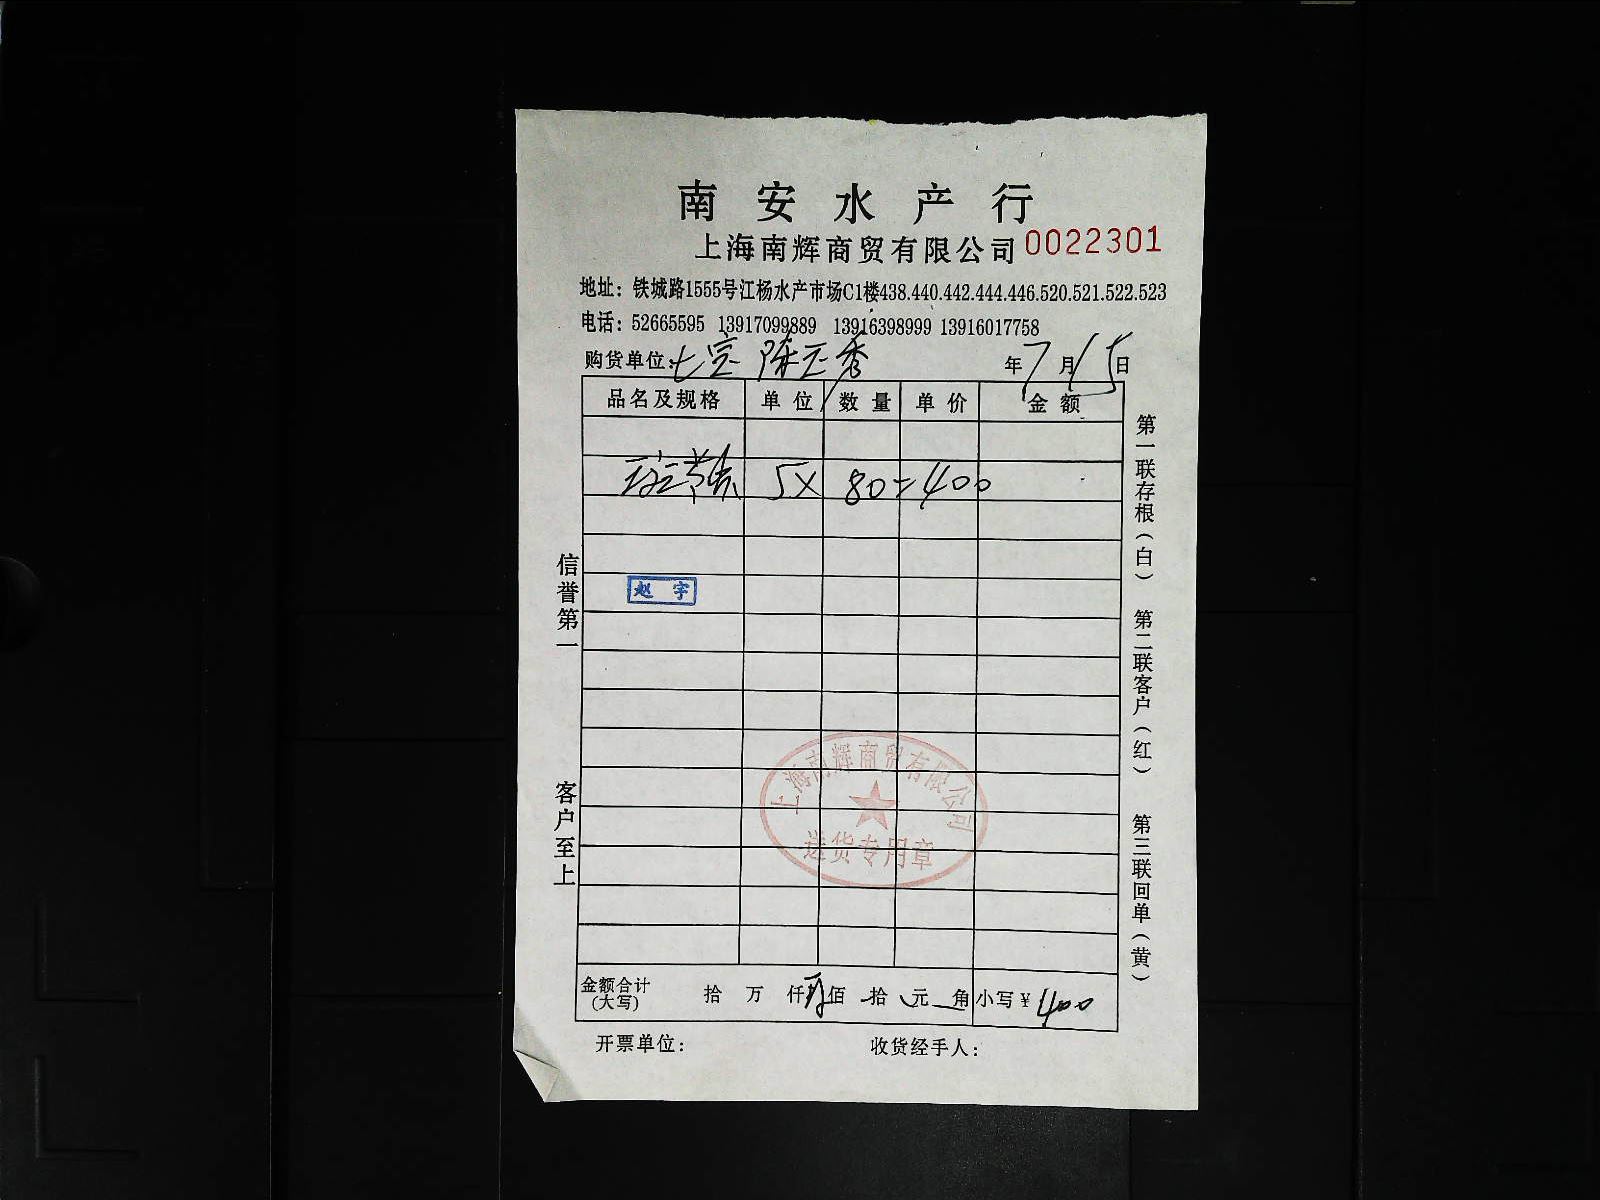 南安水产行
上海南辉商贸有限公司 0022301
地址：铁城路1555号江杨水产市场C1楼438.440.442.444.446.520.521.522.523
电话：52665595 13917099889 13916398999 13916017758
购货单位：七宝 陈玉秀 年7月15日
品名及规格 单位 数量 单价 金额
5X 80=400
赵宇
信誉第一
客户至上
上海南辉商贸有限公司
送货专用章
第一联存根（白） 第二联客户（红） 第三联回单（黄）
金额合计（大写） 拾 万 仟 佰 拾 元 角 小写¥400
开票单位： 收货经手人：